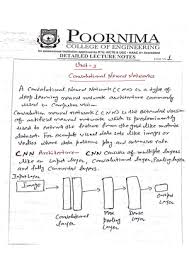 POORNIMA
COLLEGE OF ENGINEERING
DETAILED LECTURE NOTES
PAGE NO. 1
Unit-5
Convolutional Neural Networks
A Convolutional Neural Network (CNN) is a type of
deep learning neural network architecture commonly
used in Computer Vision.
Convolution neural network (CNN) is the extended version
of artificial neural network which is predominantly
used to extract the feature from the grid like matrix
dataset. For example visual datasets like images or
videos where data patterns play an extensive role.
CNN Architecture- CNN Consists of multiple layers
like an input layer, Convolutional layer, Pooling layer
and fully Connected layers.
Input Layer
Image
Convolutional
Layer
Max
Pooling
Layer
Dense
Layer
Output
Layer